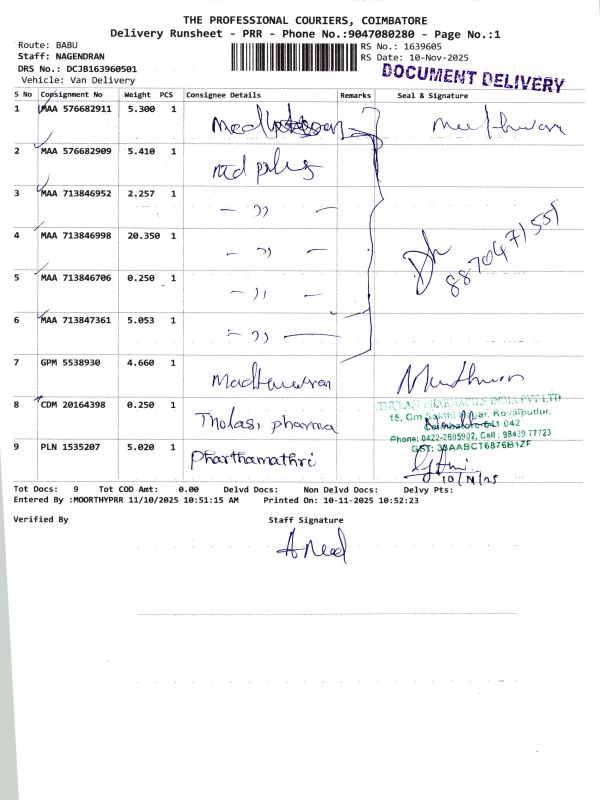 THE PROFESSIONAL COURIERS, COIMBATORE
Delivery Runsheet - PRR - Phone No.:9047080280 - Page No.:1
Route: BABU
RS No.: 1639605
Staff: NAGENDRAN
RS Date: 10-Nov-2025
DRS No.: DCJB163960501
DOCUMENT DELIVERY
Vehicle: Van Delivery
S No Consignment No Weight PCS Consignee Details Remarks Seal & Signature
1 MAA 576682911 5.300 1
2 MAA 576682909 5.410 1 med plus
3 MAA 713846952 2.257 1 - ,, -
4 MAA 713846998 20.350 1 - ,, -
8870471551
5 MAA 713846706 0.250 1 - ,, -
6 MAA 713847361 5.053 1 - ,, -
7 GPM 5538930 4.660 1
8 CDM 20164398 0.250 1 Tholasi pharma
THULASI PHARMACIES INDIA PVT LTD
15, Om Sakthi Nagar, Kovaipudur,
Coimbatore-641 042
Phone: 0422-2605902, Cell: 98439 77723
GST: 33AABCT6876B1ZF
9 PLN 1535207 5.020 1 Pharthamathri
10/11/25
Tot Docs: 9 Tot COD Amt: 0.00 Delvd Docs: Non Delvd Docs: Delvy Pts:
Entered By :MOORTHYPRR 11/10/2025 10:51:15 AM Printed On: 10-11-2025 10:52:23
Verified By Staff Signature